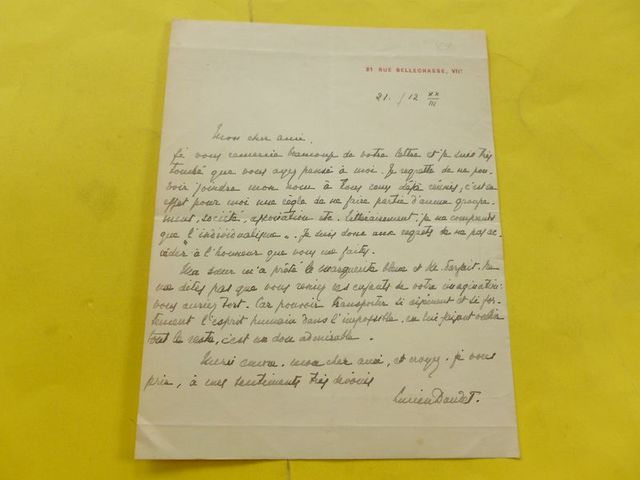 31 RUE BELLECHASSE, VIIᵉ
21. / 12 XX III
Mon cher ami,
Je vous remercie beaucoup de votre lettre et je suis très
touché que vous ayez pensé à moi. Je regrette de ne pou-
voir joindre mon nom à tous ceux déjà réunis, c'est en
effet pour moi une règle de ne faire partie d'aucun groupe-
ment, société, association etc. littérairement, je ne comprends
que "l'individualisme". Je suis donc aux regrets de ne pas ac-
céder à l'honneur que vous me faites.
Ma sœur m'a prêté le Marguerite bleue et M. Parfait. Ne
me dites pas que vous reniez ces enfants de votre imagination:
vous auriez tort. Car pouvoir transporter si aisément et si for-
tement l'esprit humain dans l'impossible, en lui faisant oublier
tout le reste, c'est un don admirable.
Merci encore, mon cher ami, et croyez, je vous
prie, à mes sentiments très dévoués
Lucien Daudet.